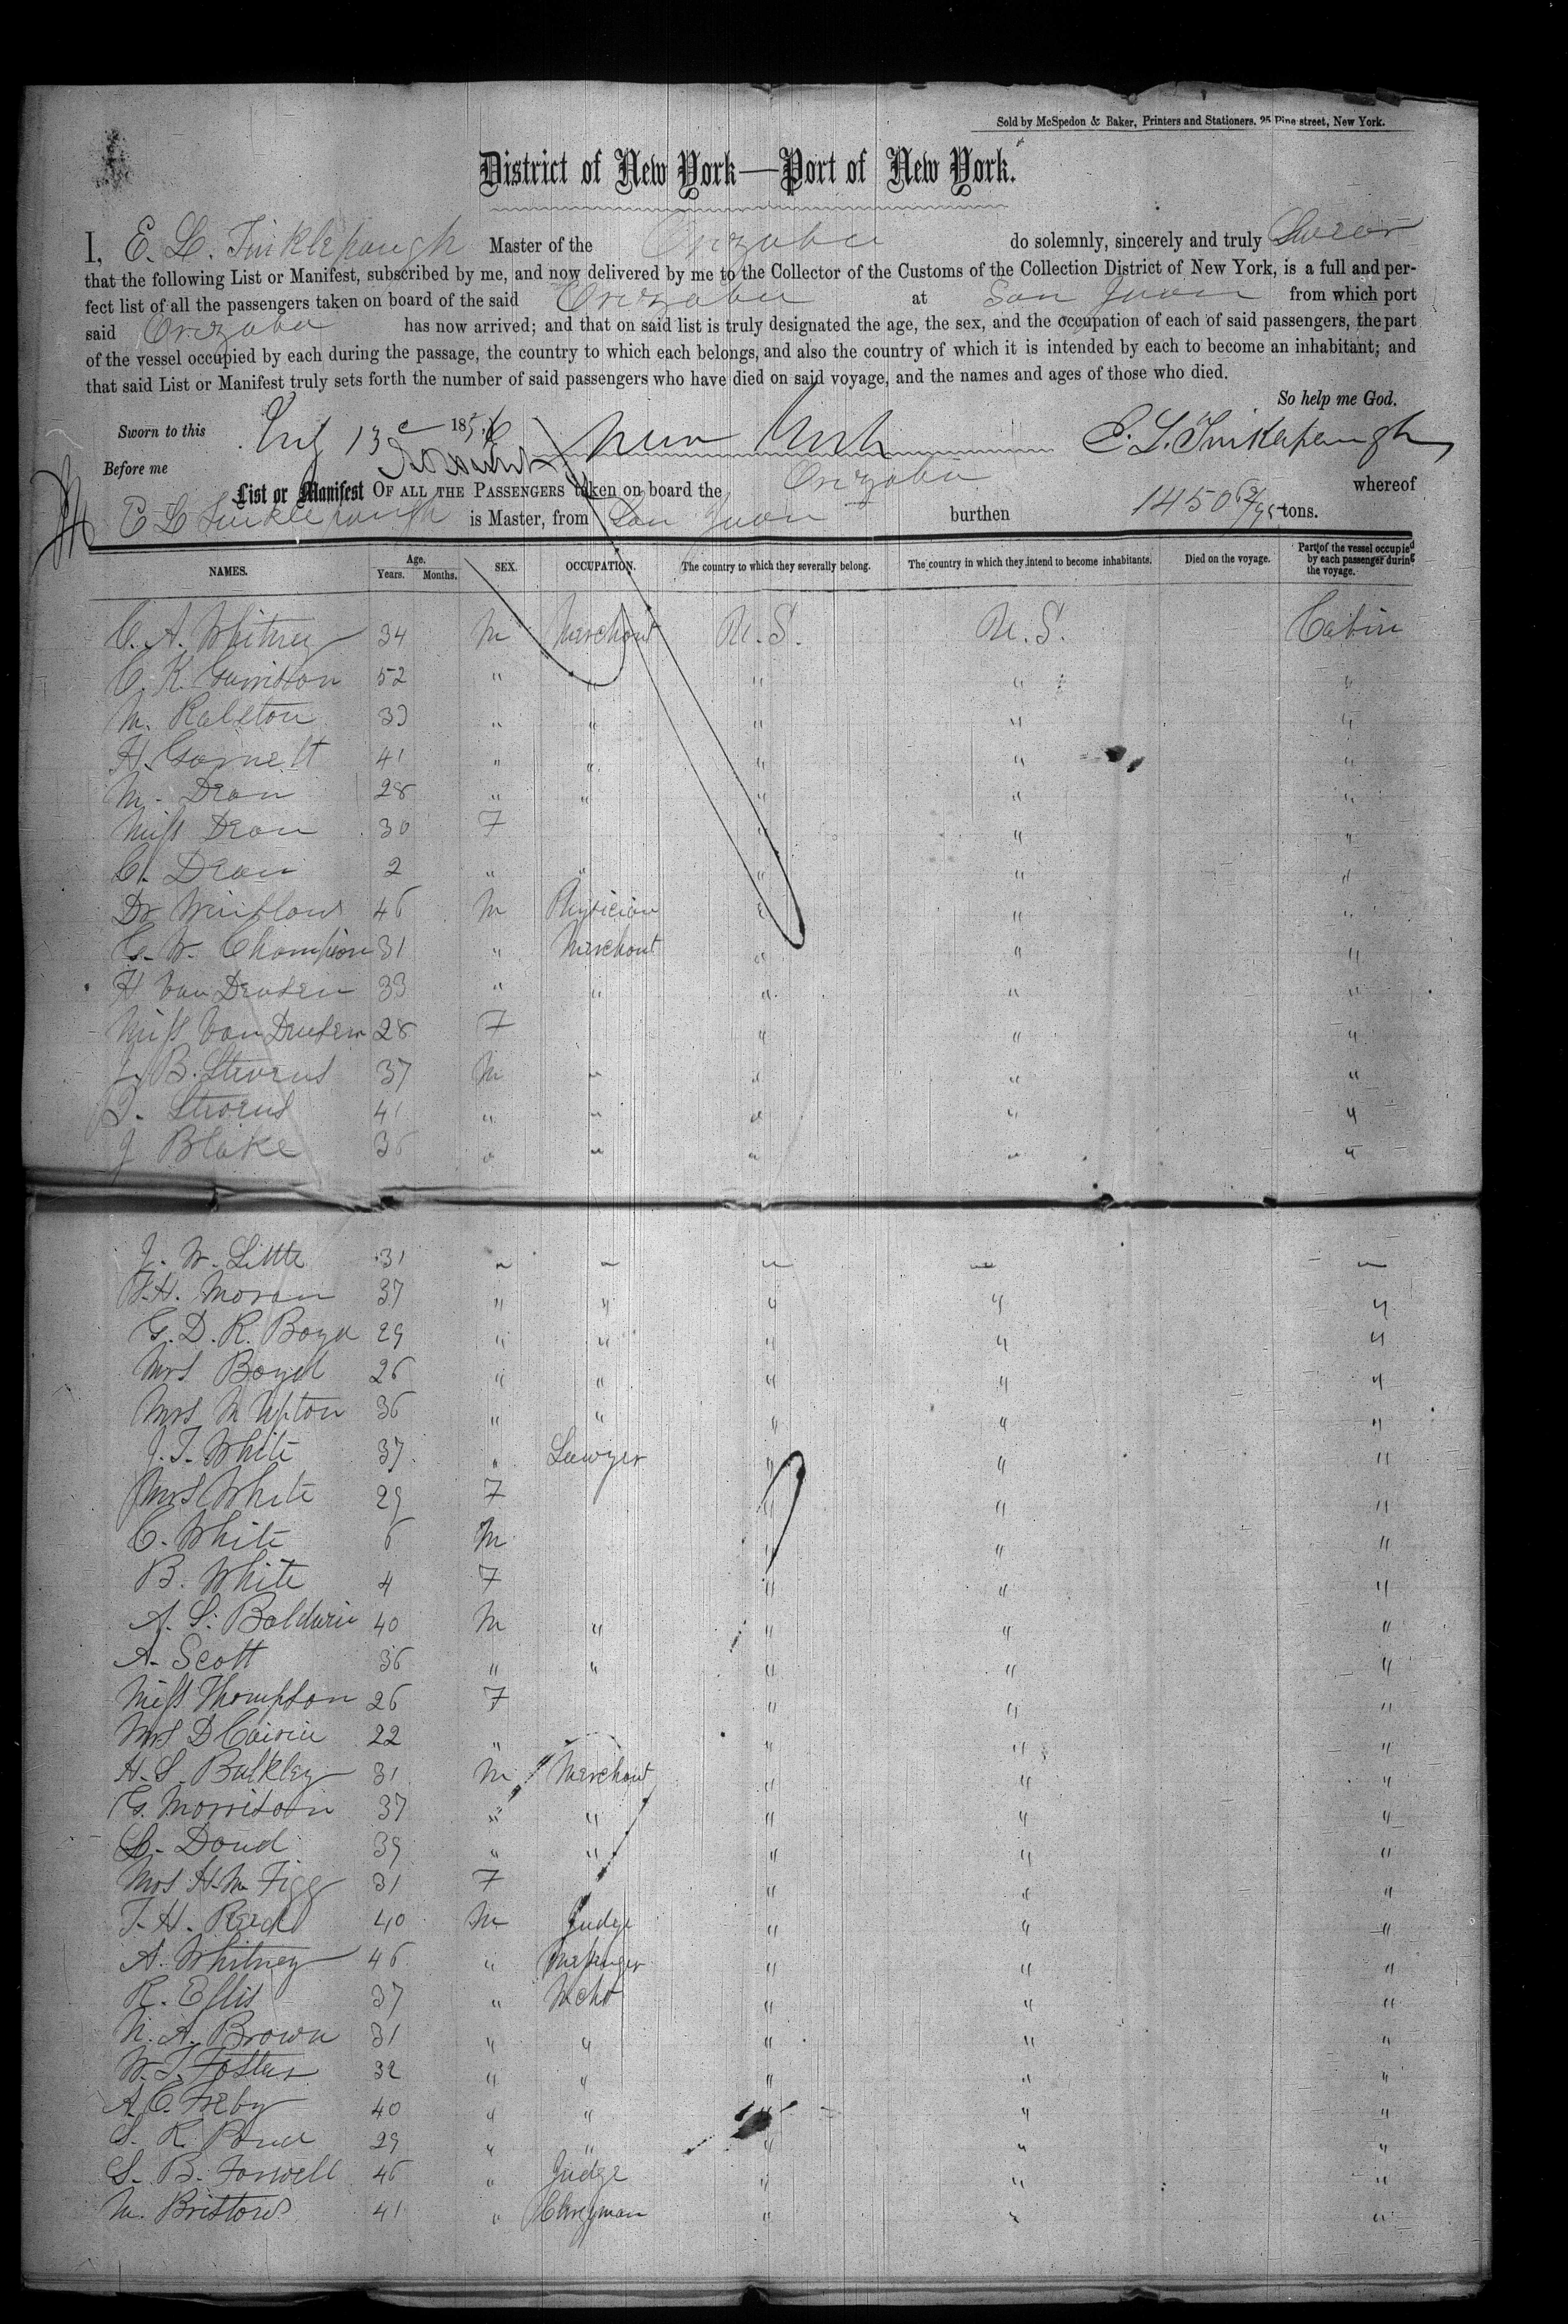 Sold by McSpedon & Baker, Printers and Stationers, 25 Pine street, New York.
District of New York—Port of New York.
I, E. L. Tinklepaugh Master of the Orizaba do solemnly, sincerely and truly Swear
that the following List or Manifest, subscribed by me, and now delivered by me to the Collector of the Customs of the Collection District of New York, is a full and per-
fect list of all the passengers taken on board of the said Orizaba at San Juan from which port
said Orizaba has now arrived; and that on said list is truly designated the age, the sex, and the occupation of each of said passengers, the part
of the vessel occupied by each during the passage, the country to which each belongs, and also the country of which it is intended by each to become an inhabitant; and
that said List or Manifest truly sets forth the number of said passengers who have died on said voyage, and the names and ages of those who died.
So help me God.
Sworn to this 13 1856 E. L. Tinklepaugh
Before me
List or Manifest OF ALL THE PASSENGERS taken on board the Orizaba whereof
E L Tinklepaugh is Master, from San Juan burthen 1450 /95 tons.
NAMES. Age. Years. Months. SEX. OCCUPATION. The country to which they severally belong. The country in which they intend to become inhabitants. Died on the voyage. Part of the vessel occupied by each passenger during the voyage.
C. A. Whitney 34 M Merchant U.S. U.S. Cabin
C. K. Garrison 52 " " " " "
M. Ralston 39 " " " " "
H. Garnett 41 " " " " "
M. Dean 28 " " " " "
Miss Dean 30 F " " "
C. Dean 2 " " " " "
Dr Winslow 46 M Physician " " "
G. W. Champion 31 " Merchant " " "
H Van Deusen 33 " " " " "
Miss Van Deusen 28 F " " "
J. B. Stevens 37 M " " " "
J. Stevens 41 " " " " "
J Blake 36 " " " " "
J. W. Little 31 " " " " "
T. H. Moran 37 " " " " "
G. D. R. Boyd 29 " " " " "
Mrs Boyd 26 " " " " "
Mrs M Upton 36 " " " " "
J. T. White 37 " Lawyer " " "
Mrs White 29 F " " "
C. White 6 M " " "
B. White 4 F " " "
A. S. Baldwin 40 M " " " "
A. Scott 36 " " " " "
Miss Thompson 26 F " " "
Mrs D 22 " " " "
H. S. Bulkley 31 M Merchant " " "
G. Morrison 37 " " " " "
Doud 39 " " " " "
Mrs H. M. Figg 31 F " " "
T. H. Reed 40 M Judge " " "
A. Whitney 46 " Messenger " " "
R. Ellis 37 " Mcht " " "
N. A. Brown 31 " " " " "
W. T. Foster 32 " " " " "
A. C. 40 " " " " "
S. R. 29 " " " " "
S. B. Farwell 46 " Judge " " "
M. Bristow 41 " Clergyman " " "